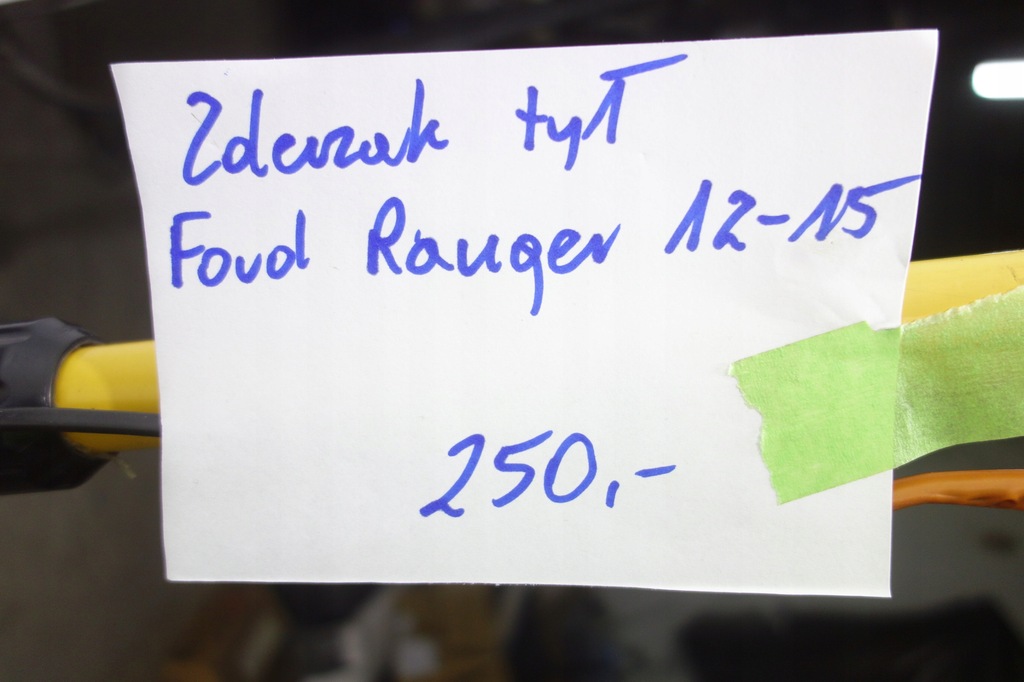 Zderzak tył
Ford Ranger 12-15
250,-